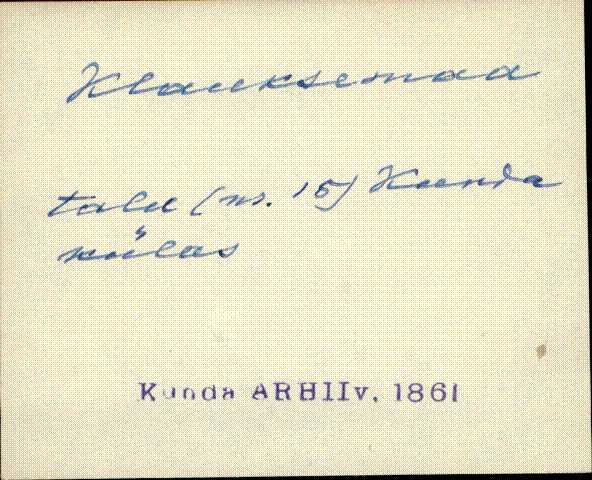 Klauksemaa
talu (nr. 15) Kunda
külas
Kunda ARHIIv. 1861